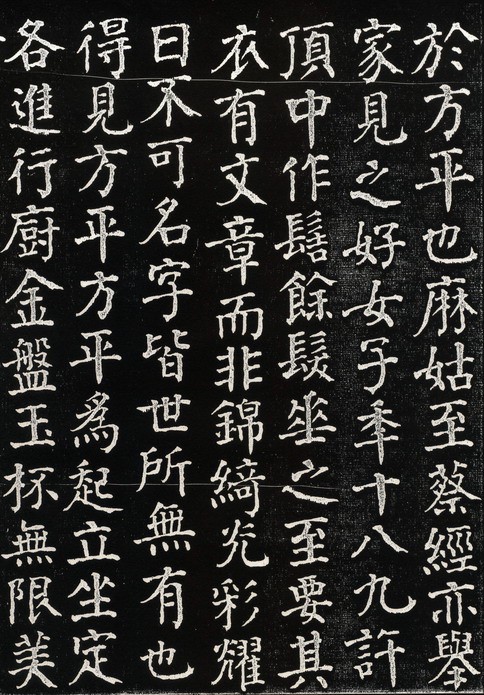 於方平也麻姑至蔡經亦舉
家見之好女子秊十八九許
頂中作髻餘髮垂之至要其
衣有文章而非錦綺光彩耀
日不可名字皆世所無有也
得見方平方平爲起立坐定
各進行廚金盤玉杯無限美